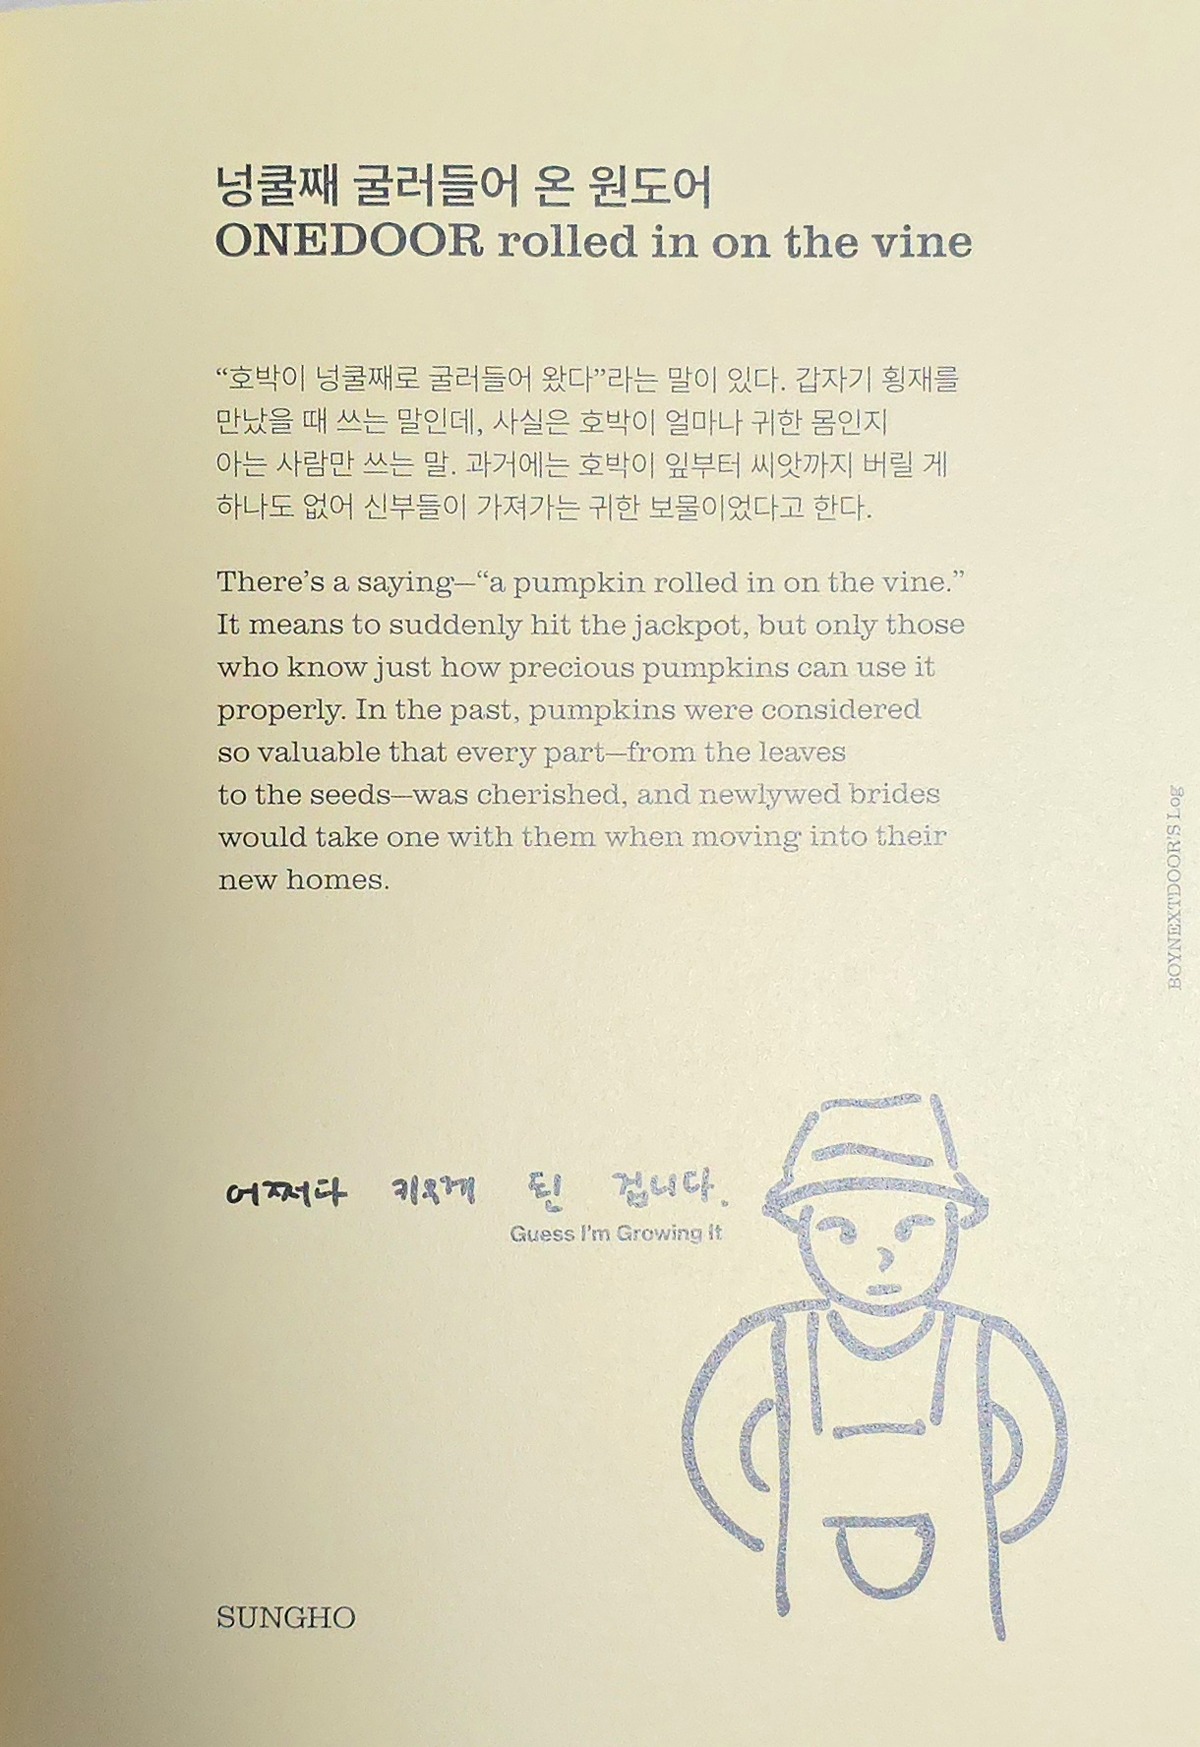 넝쿨째 굴러들어 온 원도어
ONEDOOR rolled in on the vine
“호박이 넝쿨째로 굴러들어 왔다”라는 말이 있다. 갑자기 횡재를
만났을 때 쓰는 말인데, 사실은 호박이 얼마나 귀한 몸인지
아는 사람만 쓰는 말. 과거에는 호박이 잎부터 씨앗까지 버릴 게
하나도 없어 신부들이 가져가는 귀한 보물이었다고 한다.
There’s a saying—“a pumpkin rolled in on the vine.”
It means to suddenly hit the jackpot, but only those
who know just how precious pumpkins can use it
properly. In the past, pumpkins were considered
so valuable that every part—from the leaves
to the seeds—was cherished, and newlywed brides
would take one with them when moving into their
new homes.
BOYNEXTDOOR’S Log
어쩌다 키우게 된 겁니다.
Guess I’m Growing It
SUNGHO